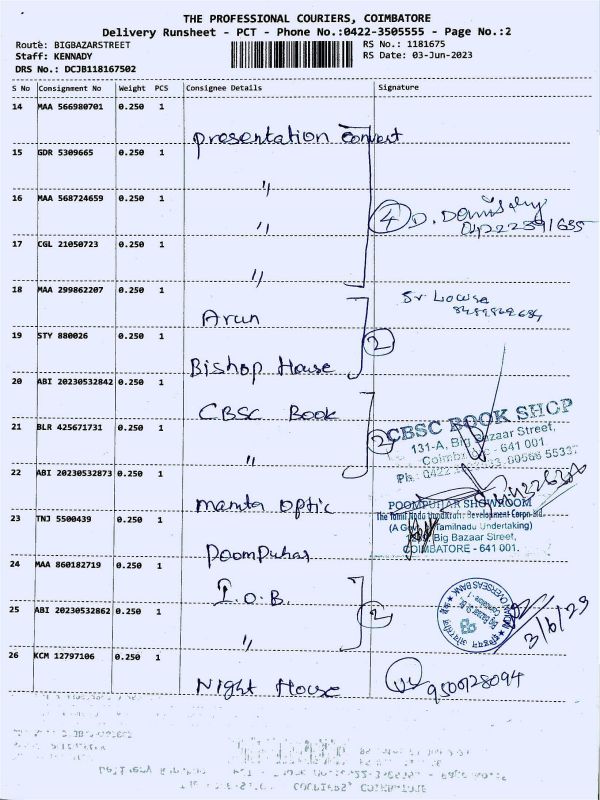 THE PROFESSIONAL COURIERS, COIMBATORE
Delivery Runsheet - PCT - Phone No.:0422-3505555 - Page No.:2
Route: BIGBAZARSTREET
RS No.: 1181675
Staff: KENNADY
RS Date: 03-Jun-2023
DRS No.: DCJB118167502
S No Consignment No Weight PCS Consignee Details Signature
14 MAA 566980701 0.250 1
presentation convent
15 GDR 5309665 0.250 1
"
16 MAA 568724659 0.250 1
"
4 D.
17 CGL 21050723 0.250 1
"
18 MAA 299862207 0.250 1
Arun
Sr Lowise
19 STY 880026 0.250 1
2
Bishop House
20 ABI 20230532842 0.250 1
CBSC Book
CBSC BOOK SHOP
21 BLR 425671731 0.250 1
"
2
131-A, Big Bazaar Street,
641 001
Ph.: 0422
22 ABI 20230532873 0.250 1
mamta optic
POOMPUHAR SHOWROOM
23 TNJ 5500439 0.250 1
The Tamil Nadu Handicrafts Development Corpn Ltd.
(A Govt. Tamilnadu Undertaking)
Big Bazaar Street,
COIMBATORE - 641 001.
Poompuhar
24 MAA 860182719 0.250 1
I.O.B.
25 ABI 20230532862 0.250 1
"
2
OVERSEAS BANK
3/6/23
26 KCM 12797106 0.250 1
Night House
9500128094